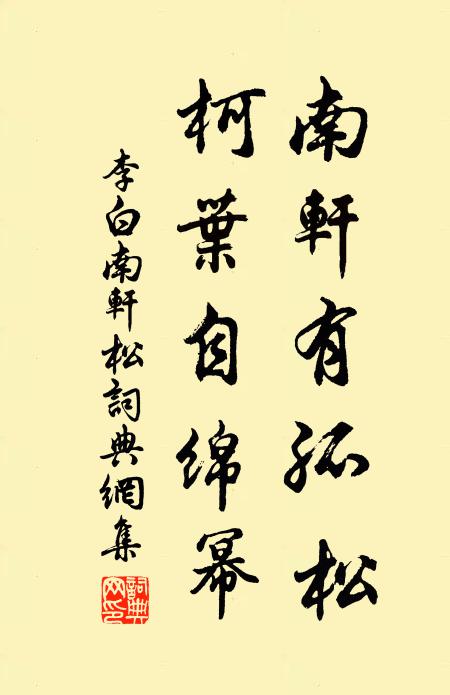 南軒有孤松
柯葉自綿冪
李白南軒松詞典網集
詞典網印